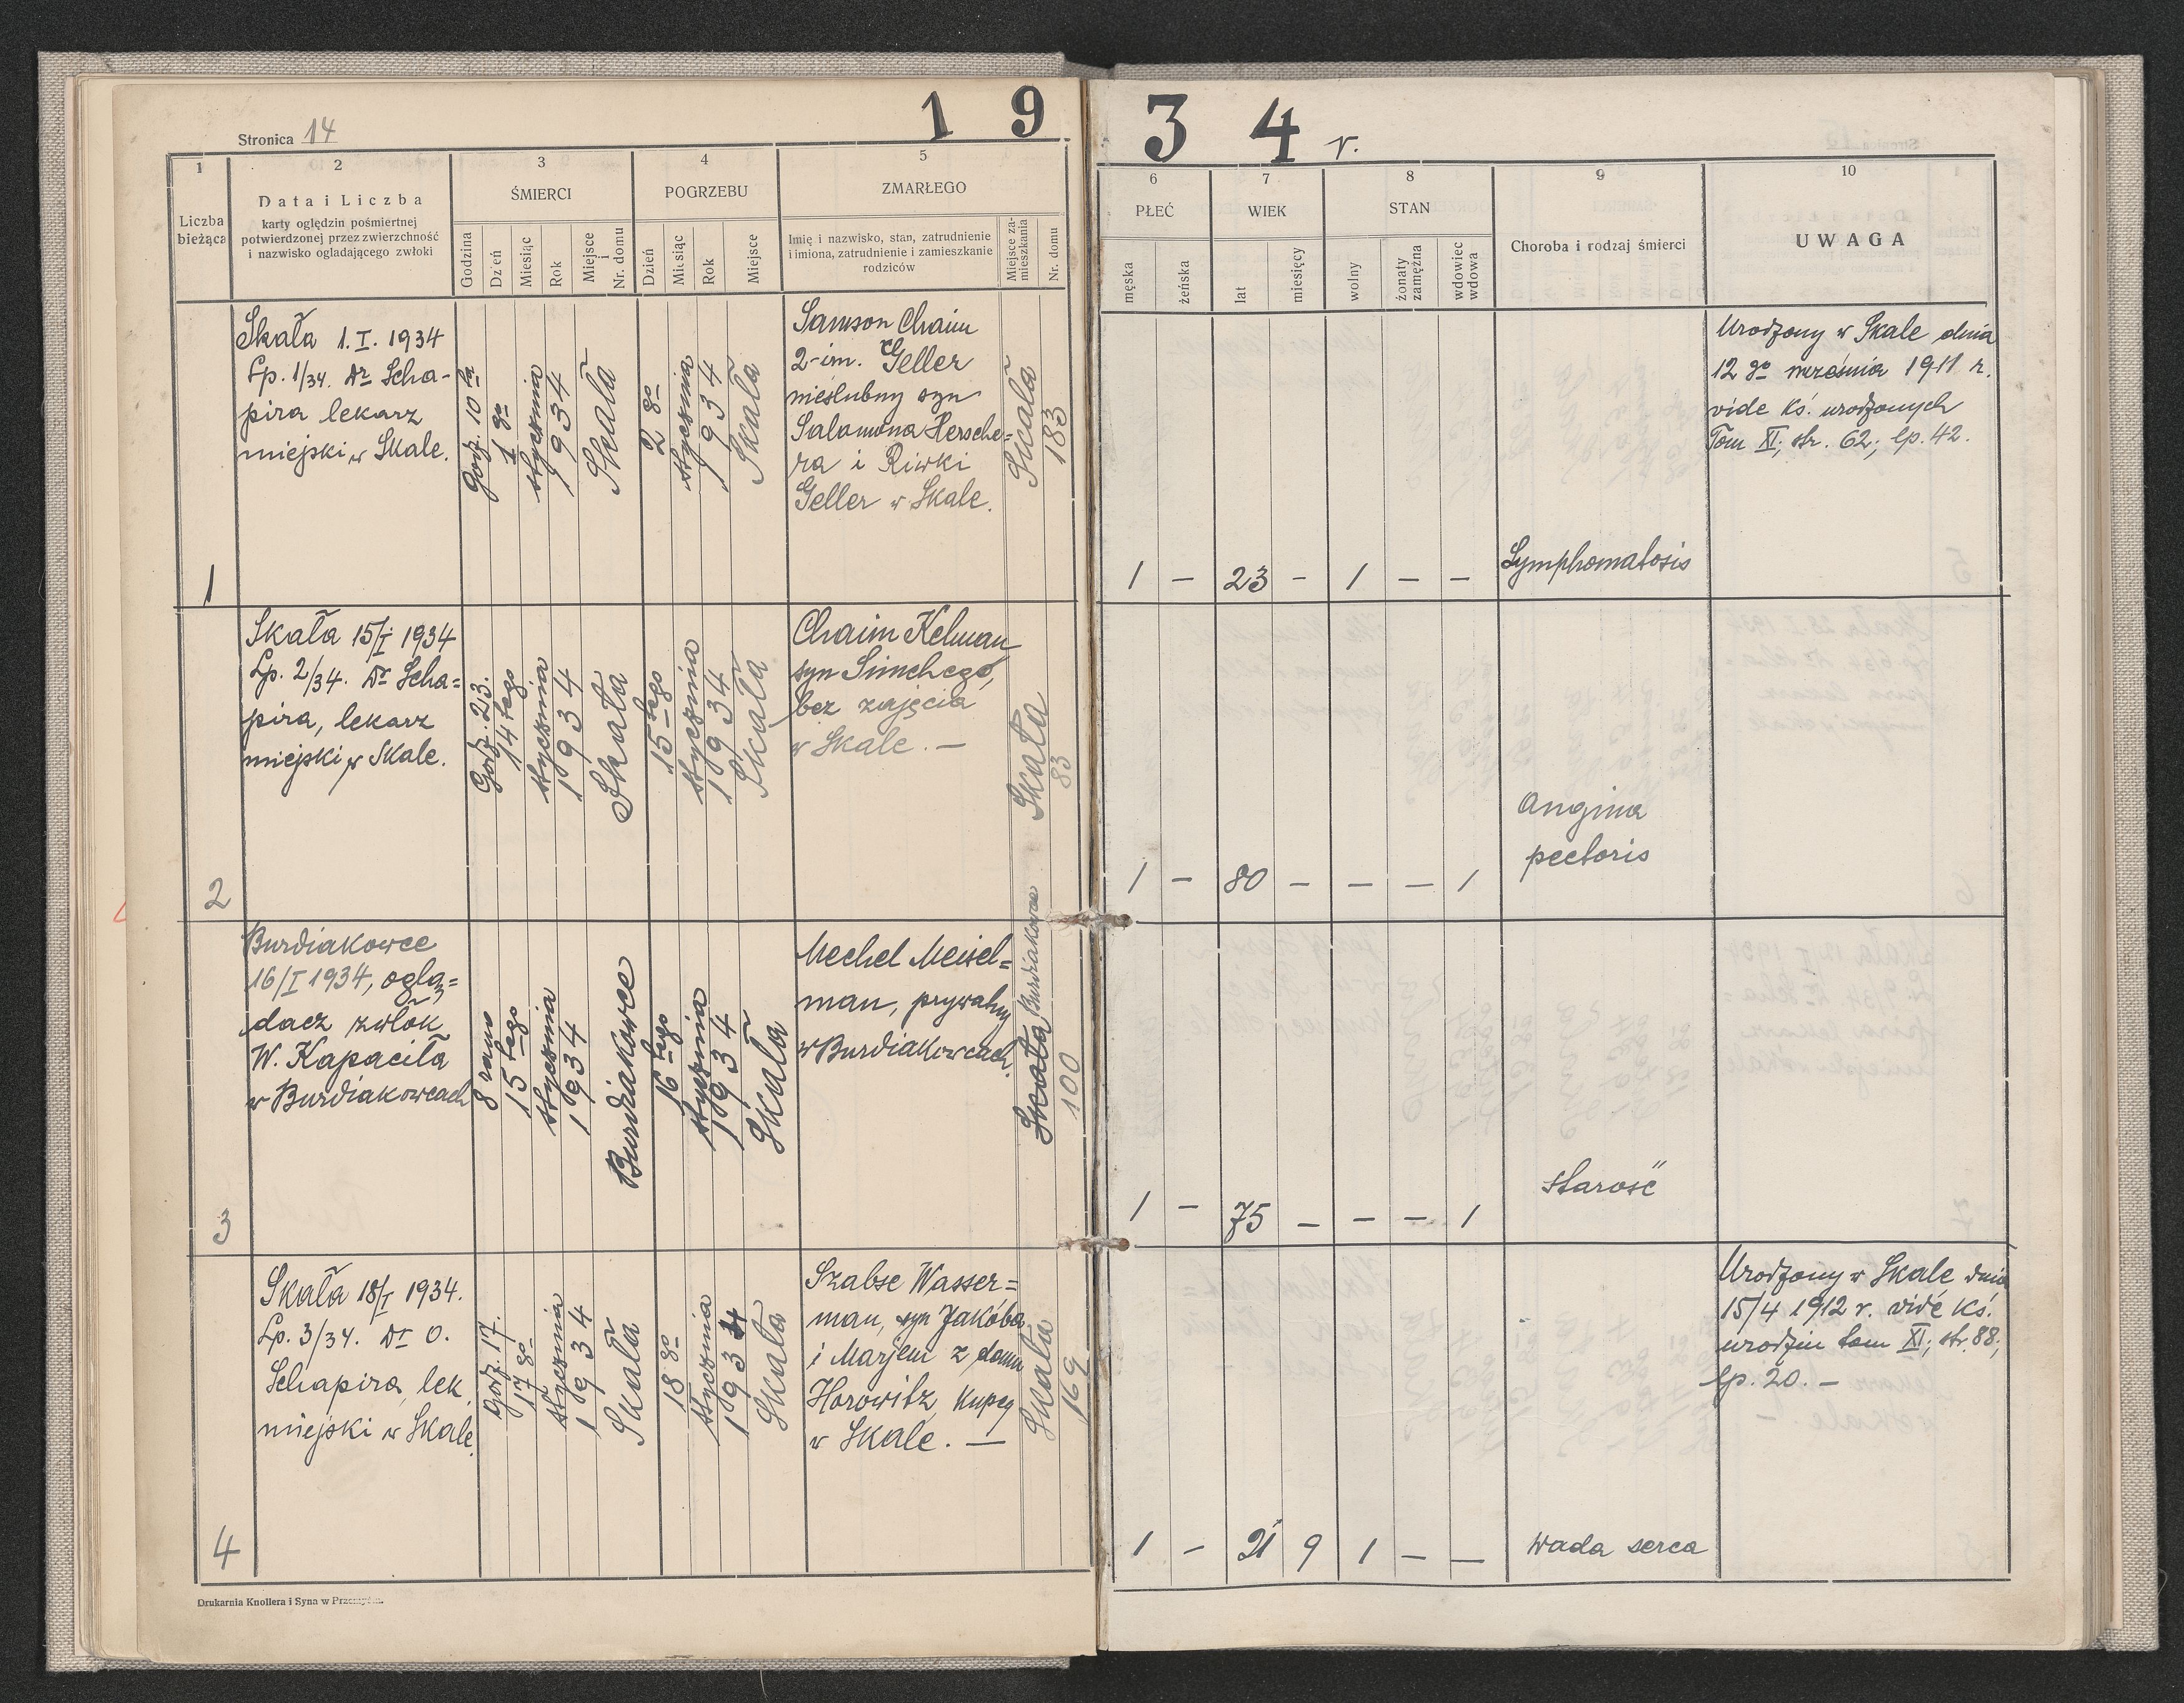 1 9 3 4 r.
Stronica 14
1
Liczba
bieżąca
2
Data i Liczba
karty oględzin pośmiertnej
potwierdzonej przez zwierzchność
i nazwisko oglądającego zwłoki
3
ŚMIERCI
Godzina
Dzień
Miesiąc
Rok
Miejsce
i
Nr. domu
4
POGRZEBU
Dzień
Miesiąc
Rok
Miejsce
5
ZMARŁEGO
Imię i nazwisko, stan, zatrudnienie
i imiona, zatrudnienie i zamieszkanie
rodziców
Miejsce za-
mieszkania
Nr. domu
6
PŁEĆ
męska
żeńska
7
WIEK
lat
miesięcy
8
STAN
wolny
żonaty
zamężna
wdowiec
wdowa
9
Choroba i rodzaj śmierci
10
UWAGA
1
Skała 1.I. 1934
Lp. 1/34. Dr Scha-
pira lekarz
miejski w Skale.
Godz. 10 ta
1 go
stycznia
1934
Skała
2 go
stycznia
1934
Skała
Samson Chaim
2-im. Geller
nieślubny syn
Salamona Hersche=
ra i Riwki
Geller w Skale.
Skała
183
1 — 23 — 1 — —
Lymphomatosis
Urodzony w Skale dnia
12 go września 1911 r.
vide Ks. urodzonych
Tom XI; str. 62; lp. 42.
2
Skała 15/I 1934
Lp. 2/34. Dr Scha=
pira, lekarz
miejski w Skale.
Godz. 23.
14 tego
stycznia
1934
Skała
15 tego
stycznia
1934
Skała
Chaim Kelman
syn Simchego,
bez zajęcia
w Skale. —
Skała
83
1 — 80 — — — 1
Angina
pectoris
3
Burdiakowce
16/I 1934, oglą=
dacz zwłok
W. Kapaciła
w Burdiakowcach
8 rano
15 tego
stycznia
1934
Burdiakowce
16 tego
stycznia
1934
Skała
Mechel Meisel=
man, prywatny
w Burdiakowcach.
Skała Burdiakowce
100
1 — 75 — — — 1
starość
4
Skała 18/I 1934.
Lp. 3/34. Dr O.
Schapira, lek.
miejski w Skale.
Godz. 17.
17 go
stycznia
1934
Skała
18 go
stycznia
1934
Skała
Szabse Wasser=
man, syn Jakóba
i Marjem z domu
Horowitz, kupcy
w Skale. —
Skała
169
1 — 21 9 1 — —
wada serca
Urodzony w Skale dnia
15/4 1912 r. vide Ks.
urodzin tom XI; str. 88;
lp. 20. —
Drukarnia Knollera i Syna w Przemyślu.